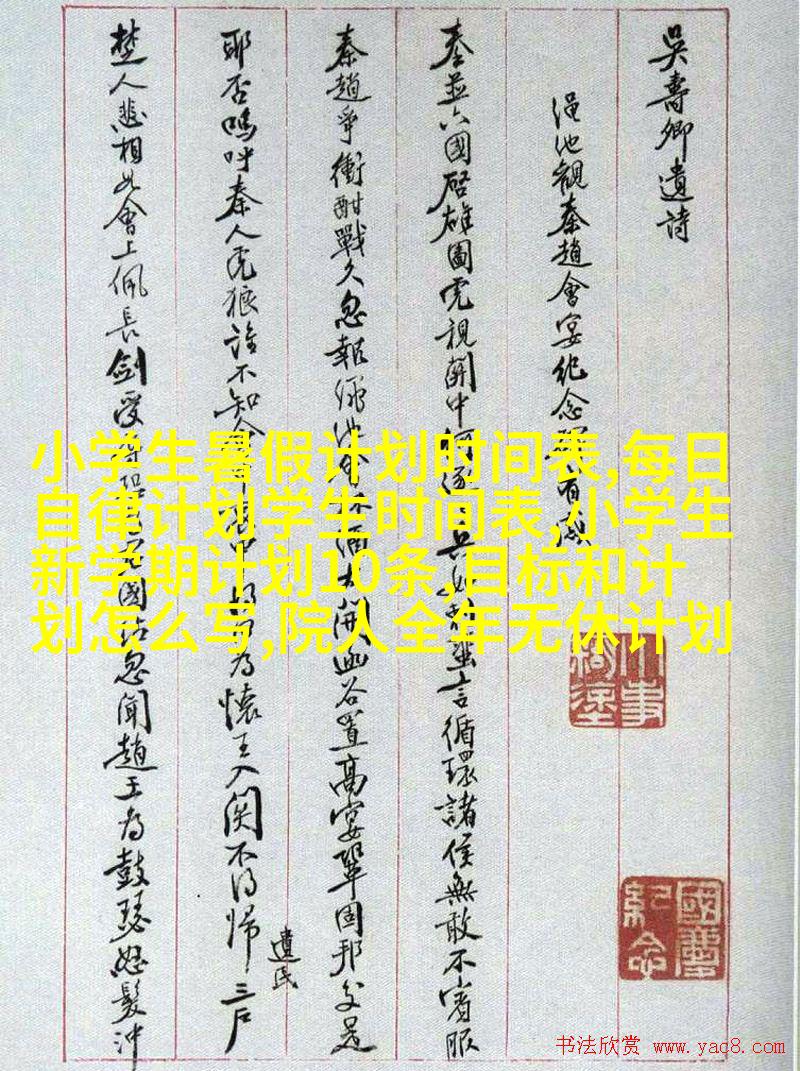 吳壽卿遺詩
渑池觀秦趙會宴紀念有感
秦並六國啓雄圖虎視關中言循環諸侯無敢不賓服
秦趙爭衡酣戰久忽報渑池會酒大開函谷置高宴鞏固邦交是
耶否嗚呼秦人虎狼誰不知為懷王入関不得歸三户
遺民
楚人悲相如會上佩長劍受國忽聞趙王為鼓瑟怒髮冲
小学生暑假计划时间表,每日
自律计划学生时间表,小学生
新学期计划10条,目标和计
划怎么写,院人全年无休计划
國慶紀念
书法欣赏 www.yac8.com